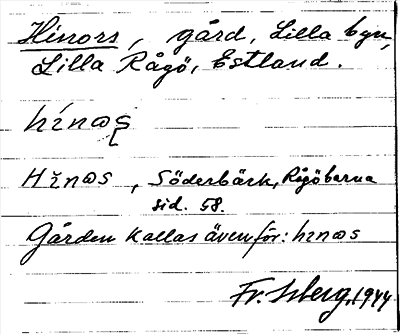 Hinors, gård, Lilla byn,
Lilla Rågö, Estland.
hínɷş
Hĭnɷs, Söderbäck, Rågöbarna
sid. 58.
Gården kallas även för: hınɷs
Fr. Isberg, 1944